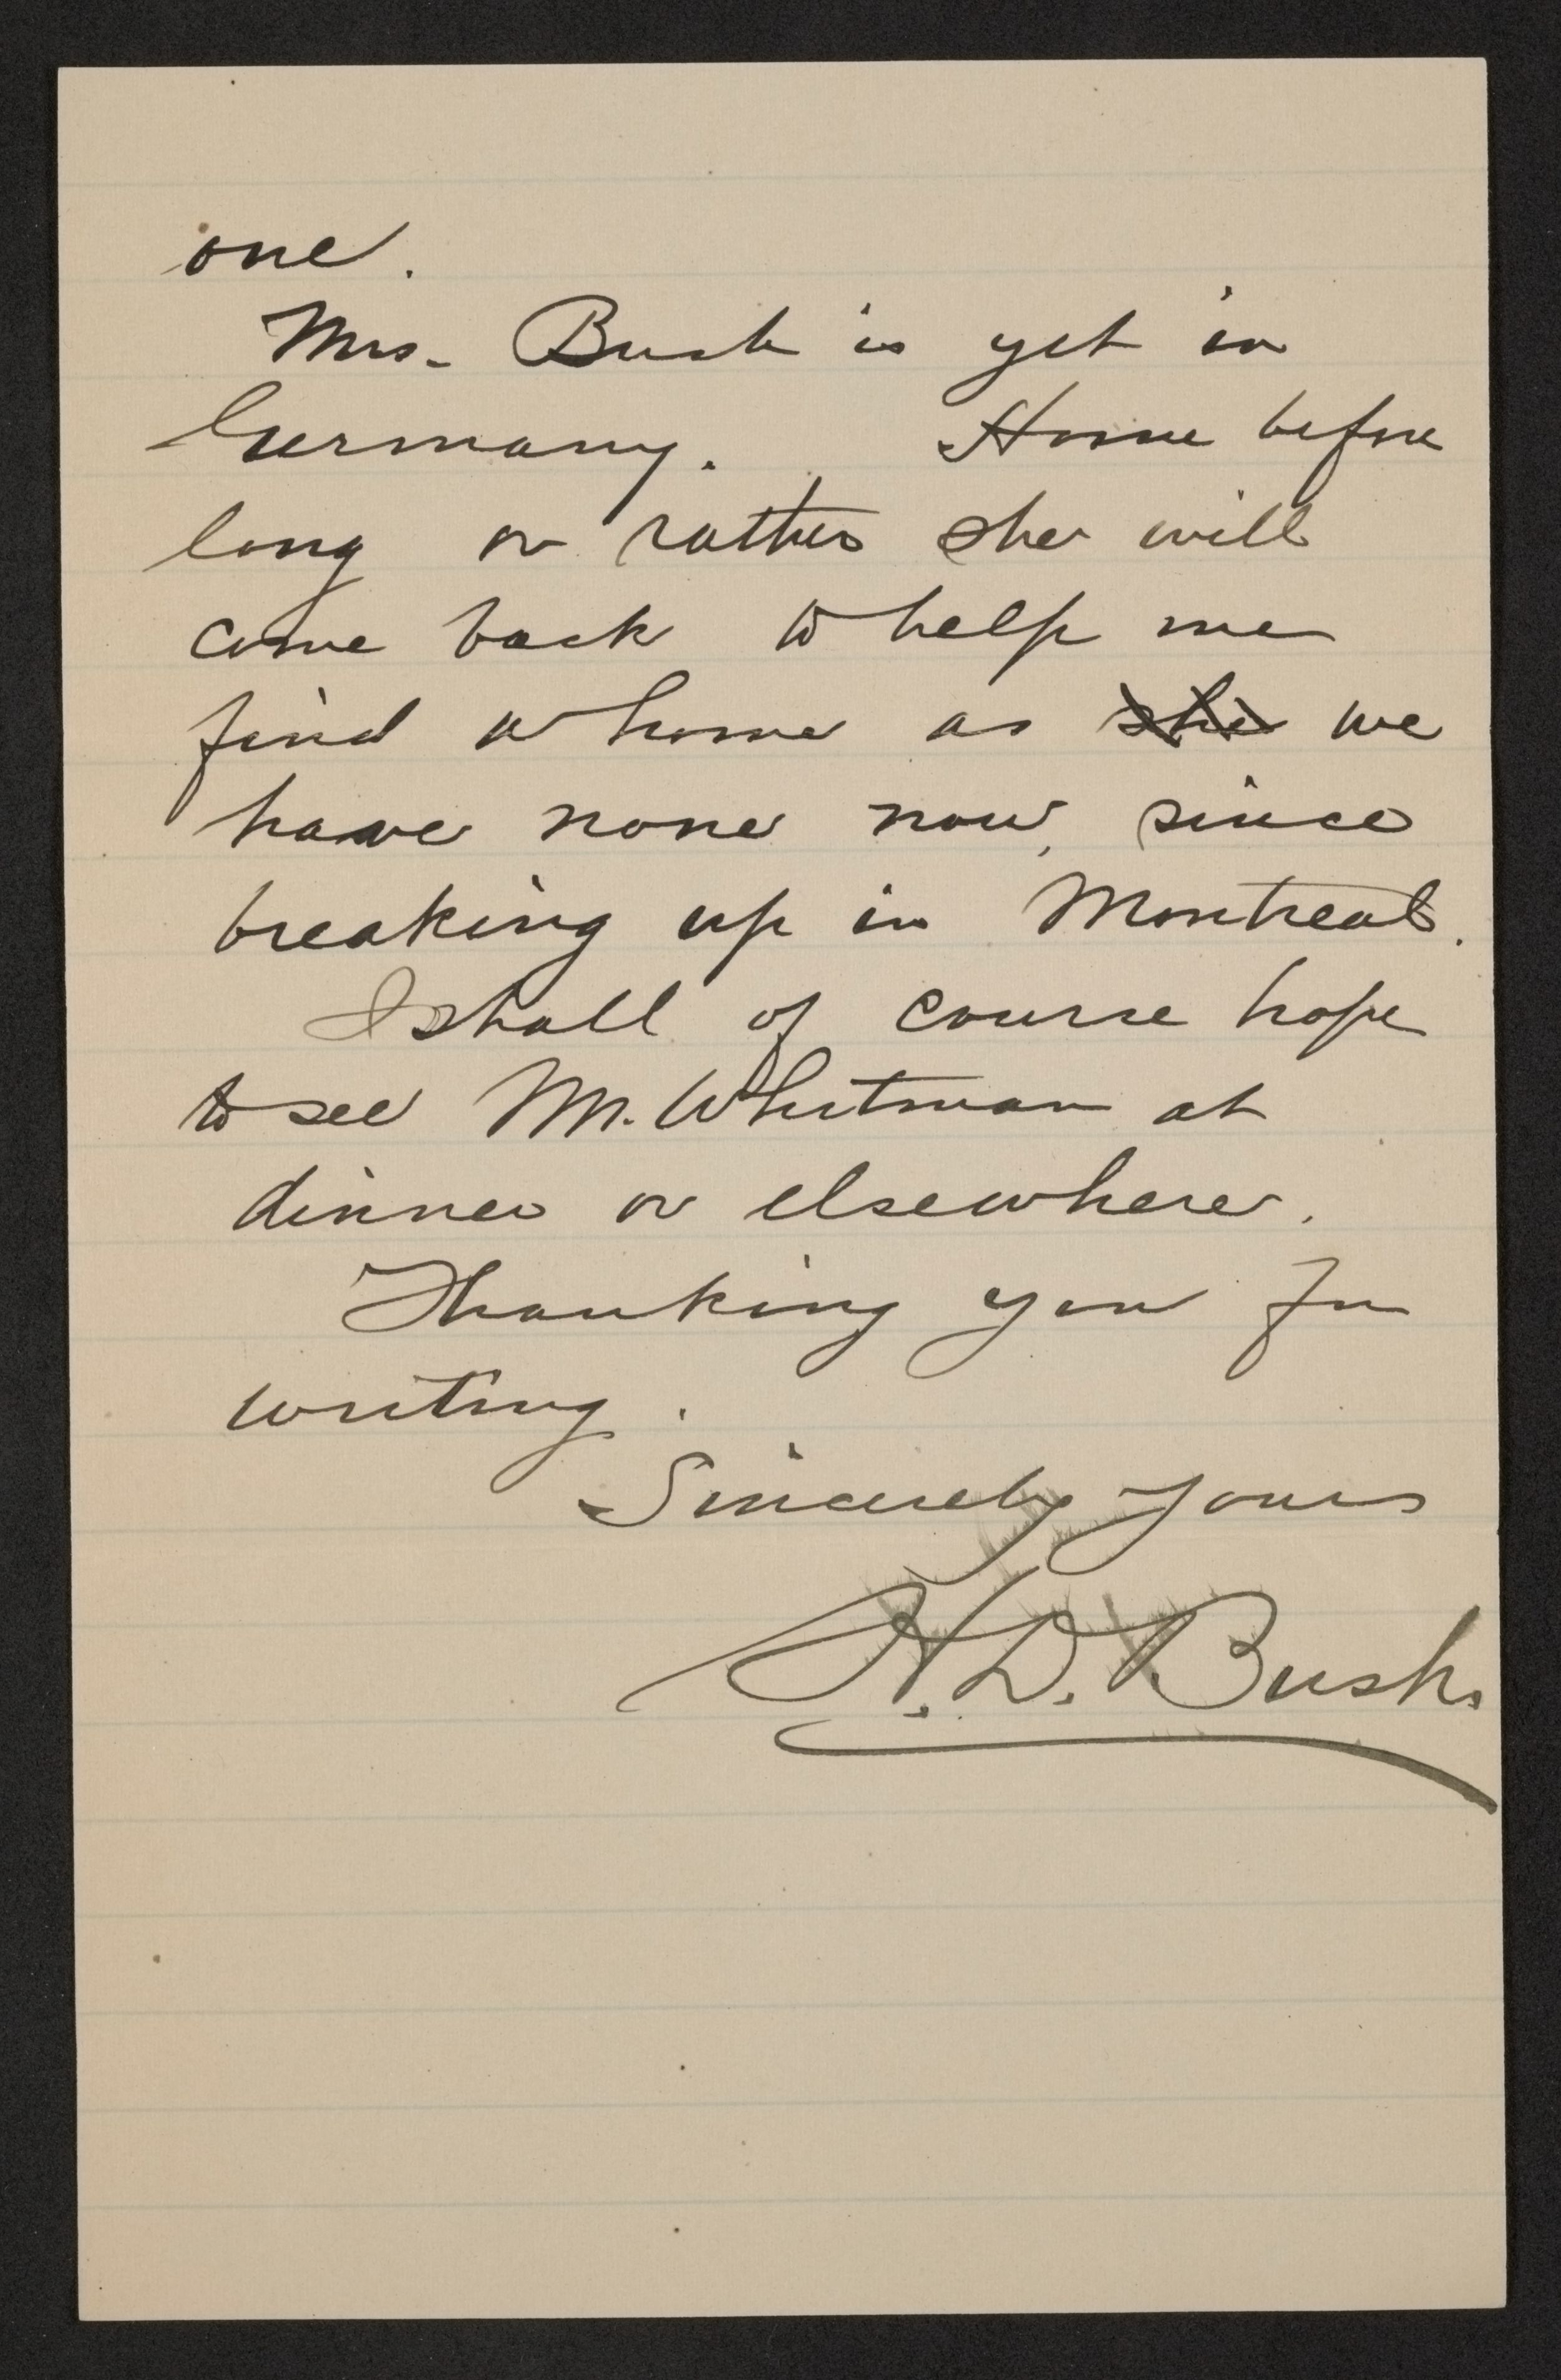 one.
Mrs. Bush is yet in
Germany. Home before
long or rather she will
come back to help me
find a home as she we
have none now, since
breaking up in Montreal.
I shall of course hope
to see Mr. Whitman at
dinner or elsewhere.
Thanking you for
writing.
Sincerely yours
H. D. Bush.